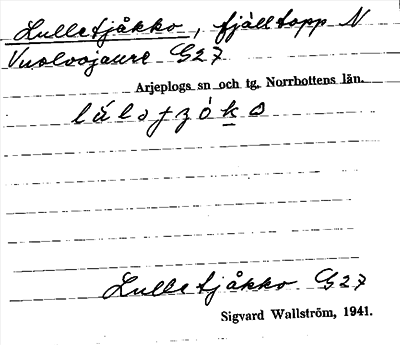 Lulletjåkko, fjälltopp N
Vuolvojaure G27
Arjeplogs sn och tg. Norrbottens län.
Lulletjåkko G27
Sigvard Wallström, 1941.